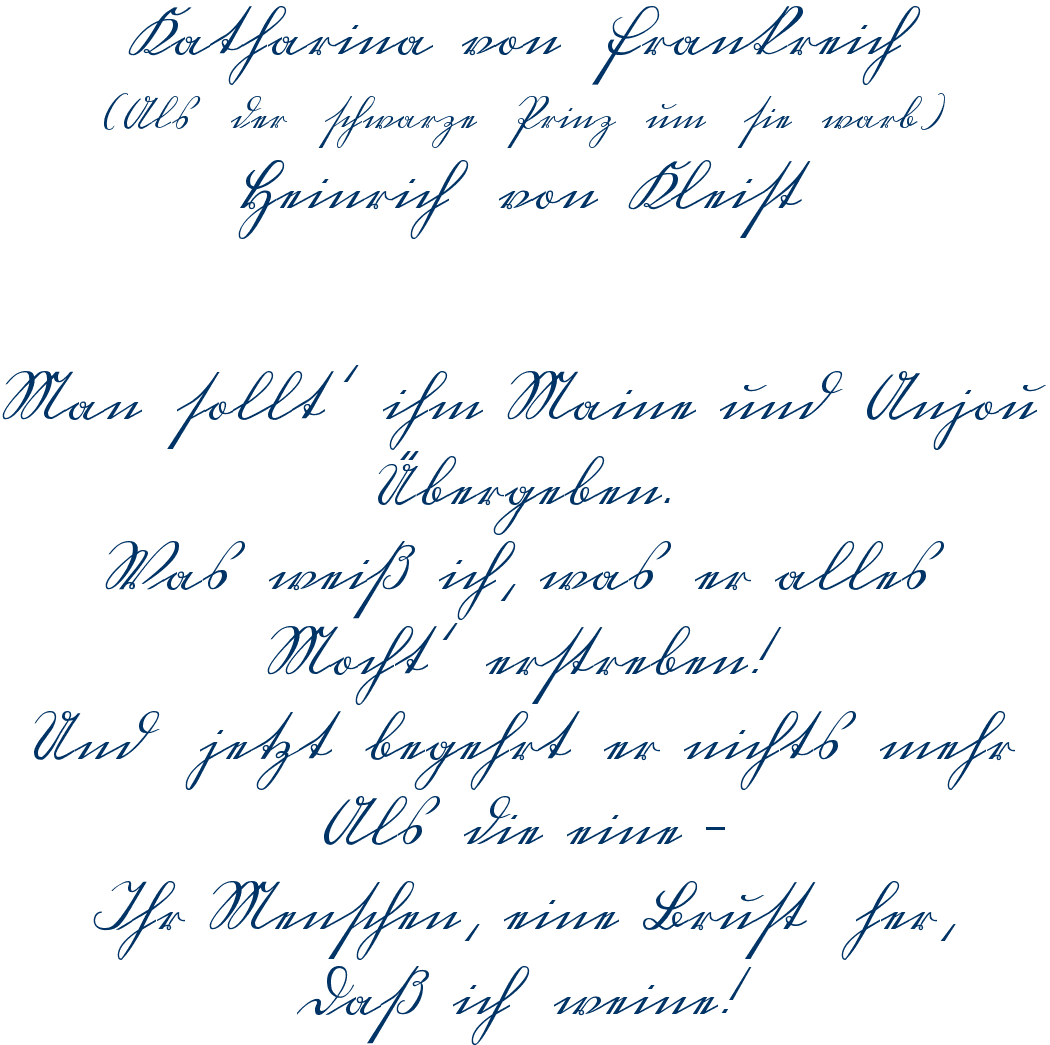 Katharina von Frankreich
(Als der schwarze Prinz um sie warb)
Heinrich von Kleist
Man sollt' ihm Maine und Anjou
Übergeben.
Was weiß ich, was er alles
Mocht' erstreben!
Und jetzt begehrt er nichts mehr
Als die eine –
Ihr Menschen, eine Brust her,
Daß ich weine!